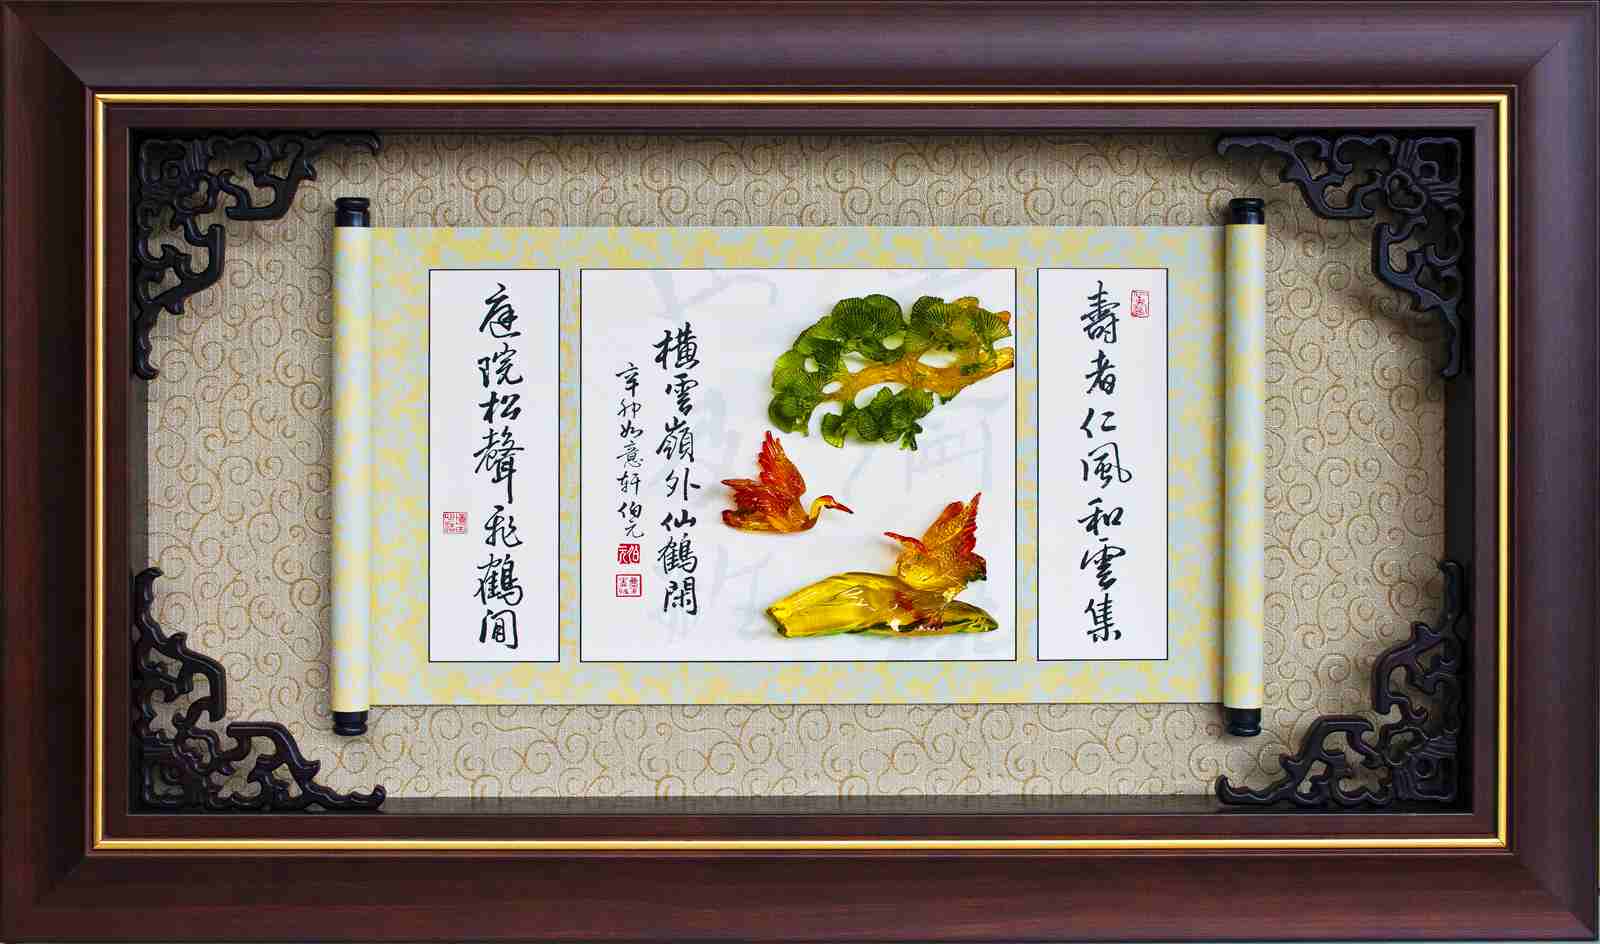 壽者仁風和雲集
橫雲嶺外仙鶴閑
辛卯如意軒伯元
庭院松聲飛鶴間